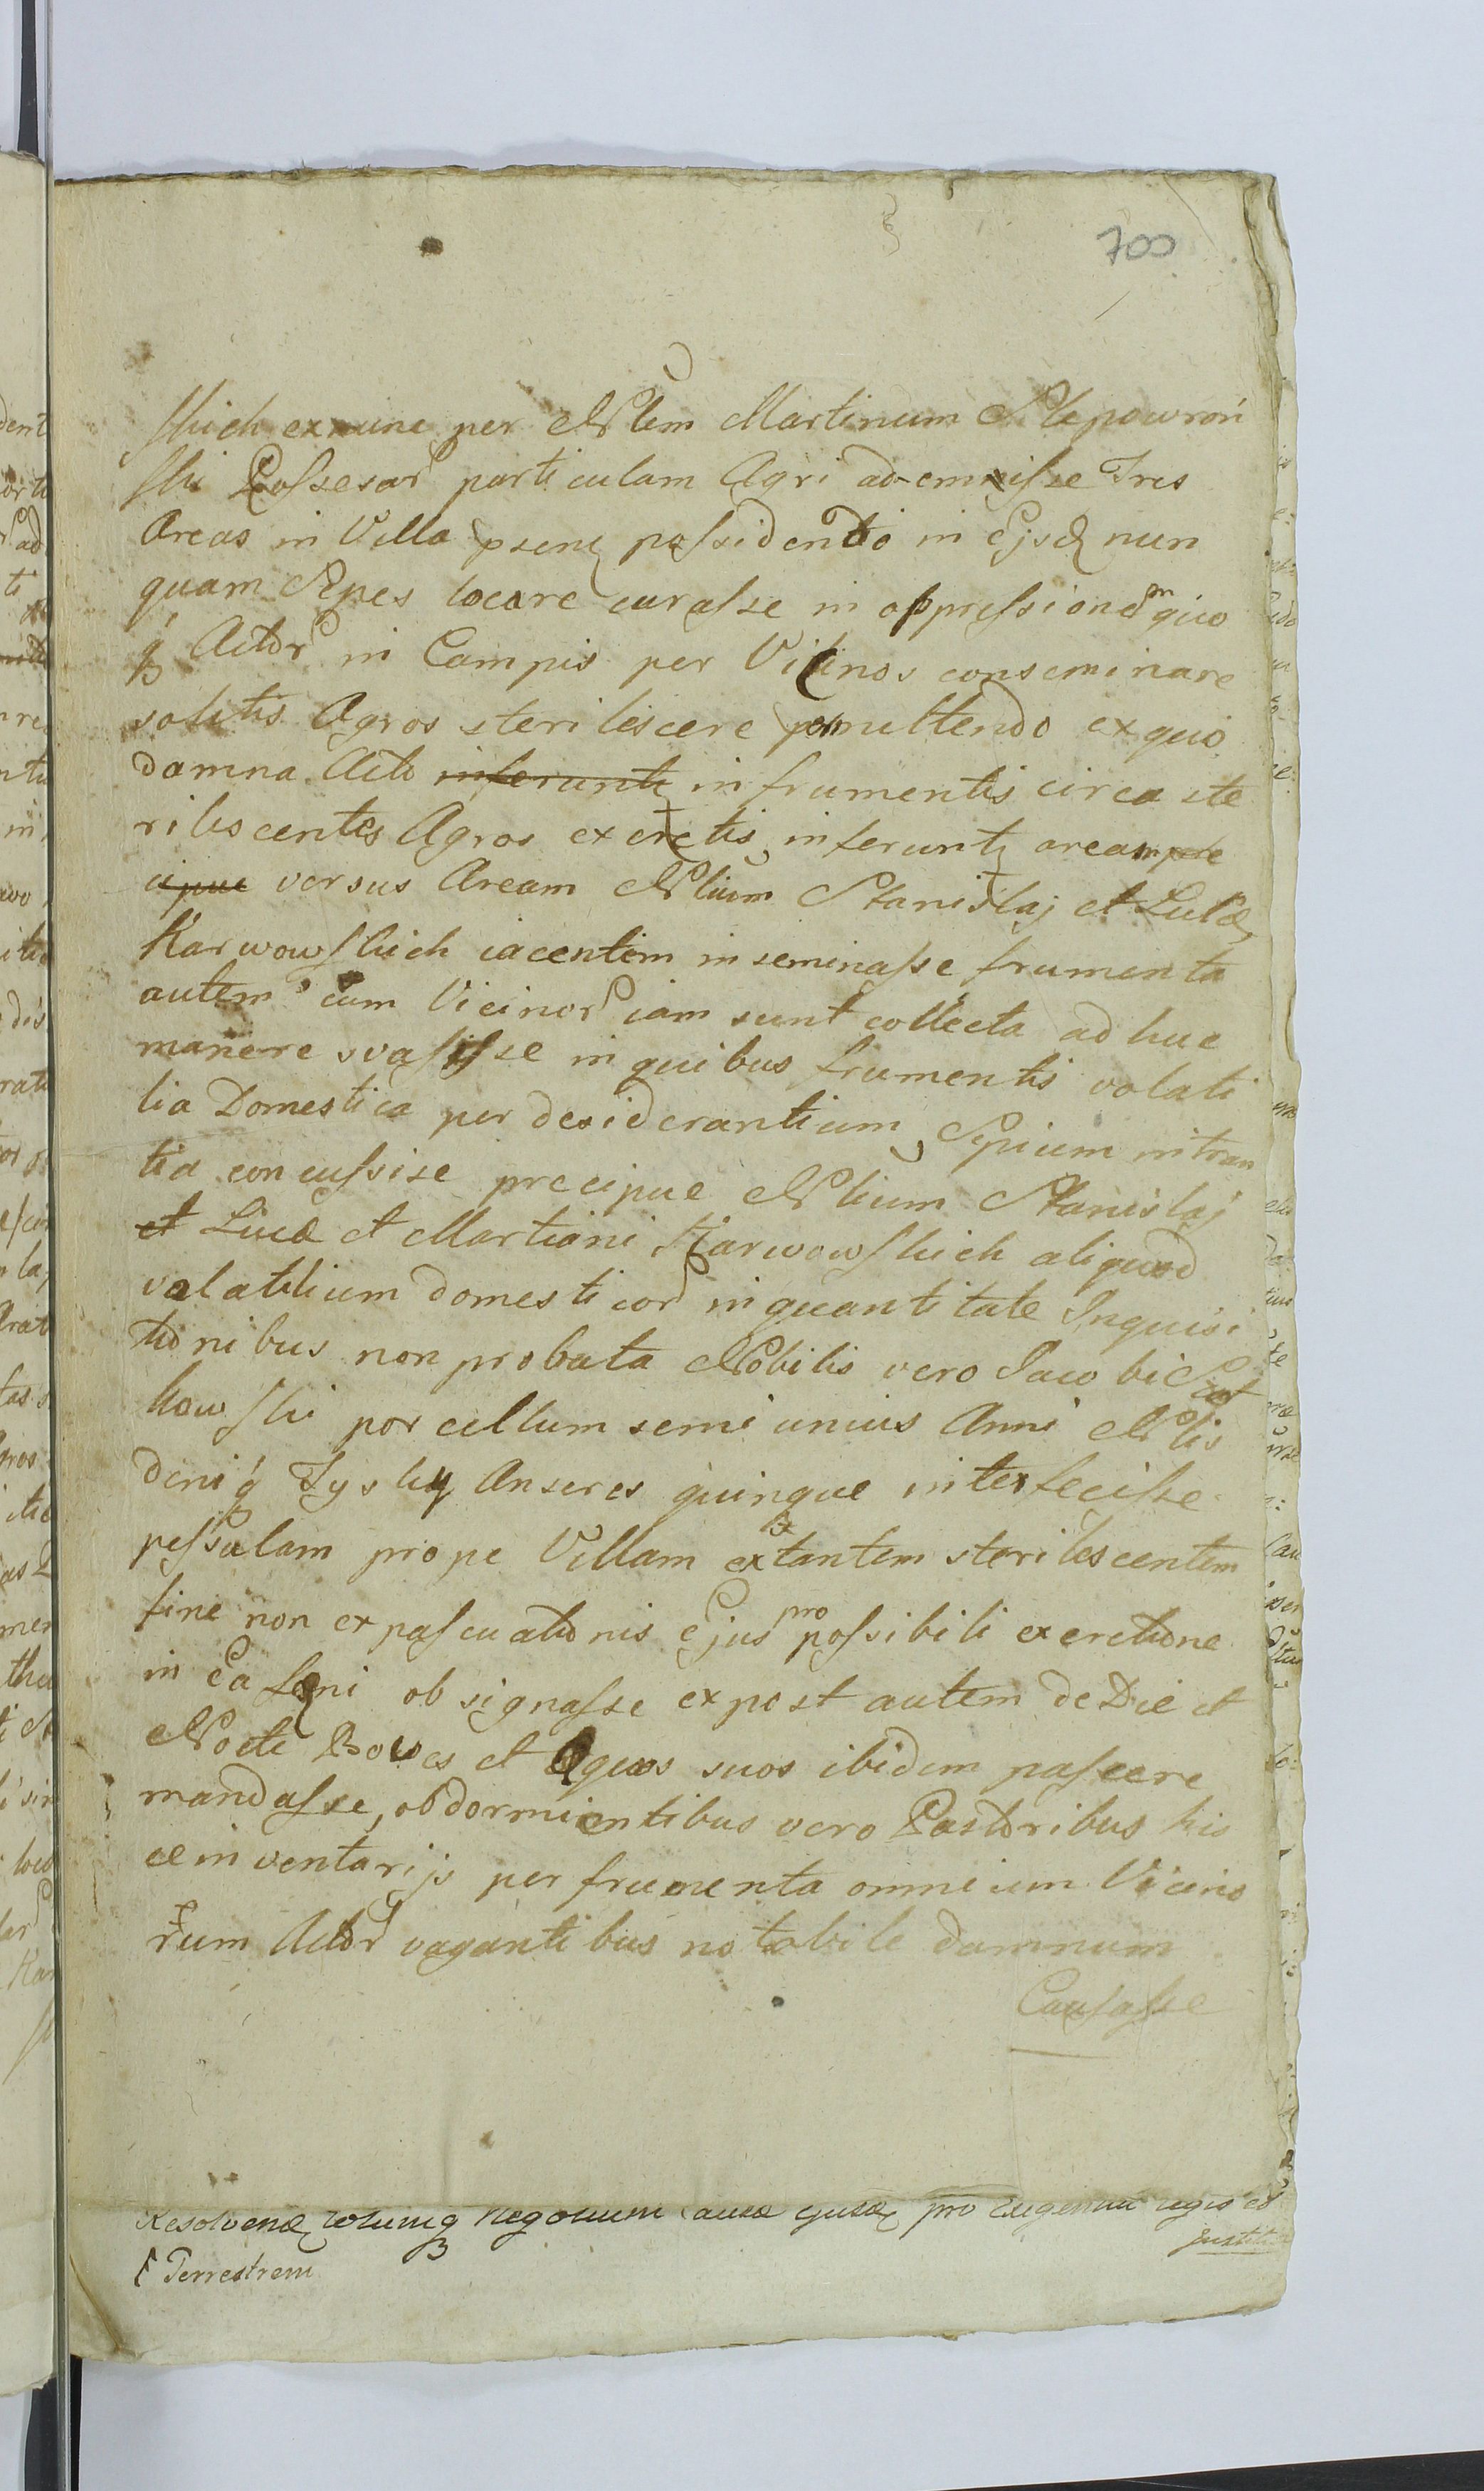 700
skich exnunc per Nblem Martinum Slepowroń
ski Possesor particulam Agri ad-emisse Tres
Areas in Villa psenti possidendo in Ejsd nun
quam Sepes locare curasse in oppressionem quo
q Actor in Campis per Vicinos conseminare
solitis Agros sterilescere permittendo ex quo
damna Acto inferunt in frumentis circa ste
rilescentes Agros exeretis inferunt aream pre
cipue versus Aream Nblium Stanislaj et Lucæ
Karwowskich iacentem inseminasse frumenta
autem cum Vicinor iam sunt collecta ad huc
manere svasisse in quibus frumentis volati
lia Domestica per desiderantium Sepium intran
tia concussisse precipue Nblium Stanislaj
et Lucæ et Martiani Karwowskich aliquod
volatilium domesticor in quantitate Inquisi
tionibus non probata Nobilis vero Jacobi
kowski porcellum semi unius Anni Nblis
deniq Łysky Anseres quinque interfecisse
pessulam prope Villam extantem sterilescentem
fine non expascuationis Ejus pro possibili exeretione
in ea Fæni obsignasse expost autem de Die et
Nocte Boves et Equos suos ibidem pascere
mandasse, obdormientibus vero Pastoribus his
ce inventarijs per frumenta omnium Vicino
rum Actor vagantibus notabile damnum
Causasse
Resolvend totumq negotium causæ ejusd pro exigentia legis et
justitiæ
Terrestrem